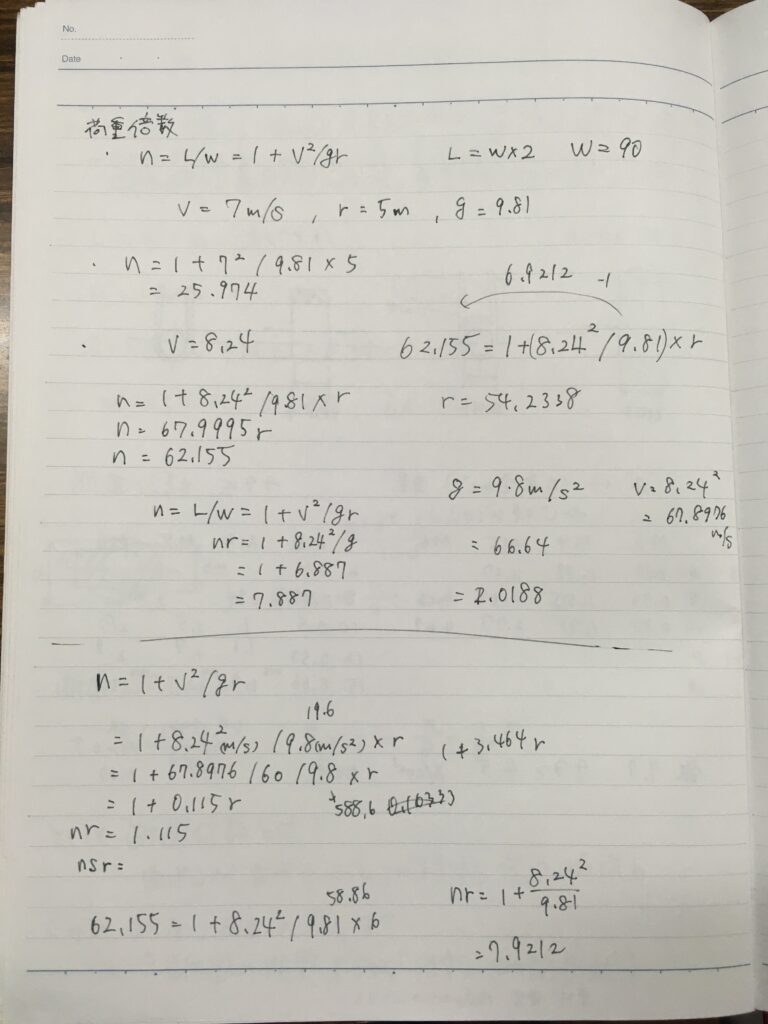 No.
Date
荷重倍数
・ n = L/w = 1 + V²/gr L = w×2 W = 90
V = 7m/s , r = 5m , g = 9.81
・ n = 1 + 7² / 9.81 × 5
= 25.974
6.9212 -1
・ V = 8.24
62.155 = 1+(8.24²/9.81)×r
n = 1 + 8.24² /9.81 × r
r = 54.2338
n = 67.9995r
n = 62.155
g = 9.8m/s² V = 8.24²
= 67.8976
m/s
n = L/w = 1 + V²/gr
nr = 1 + 8.24²/g = 66.64
= 1 + 6.887
= 7.887 = 2.0188
n = 1 + V²/gr
19.6
= 1 + 8.24²(m/s) / 9.8(m/s²) × r 1 + 3.464 r
= 1 + 67.8976 / 60 / 9.8 × r
= 1 + 0.115 r 588.6
nr = 1.115
nsr =
58.86
62.155 = 1 + 8.24² / 9.81 × 6
nr = 1 + 8.24²/9.81
= 7.9212